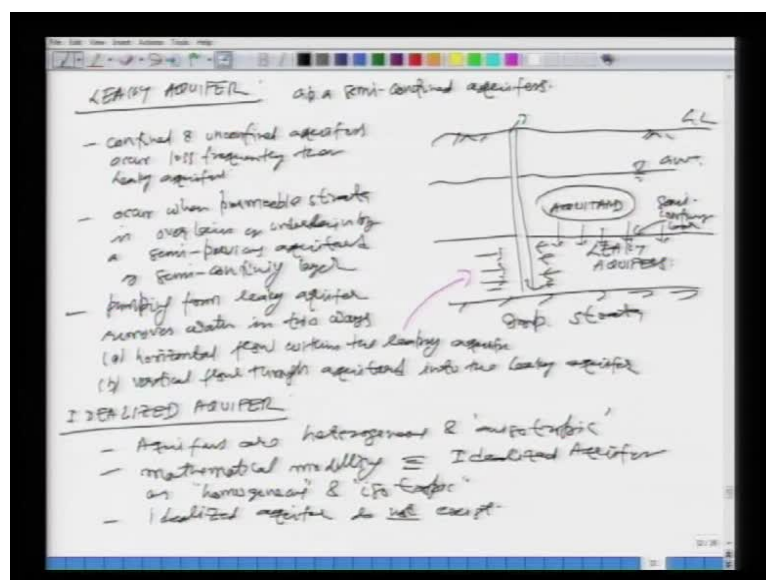 LEAKY AQUIFER: a.k.a semi-confined aquifers.
- confined & unconfined aquifers
occur less frequently than
leaky aquifers
- occur when permeable strata
is overlain or underlain by
a semi-pervious aquitard
or semi-confining layer
- pumping from leaky aquifer
removes water in two ways
(a) horizontal flow within the leaky aquifer
(b) vertical flow through aquitard into the leaky aquifer
G.L
GWT.
AQUITARD
Semi-
confining
LEAKY
AQUIFERS
Imp. strata
IDEALIZED AQUIFER
- Aquifers are heterogeneous & 'anisotropic'
- mathematical modelling ≡ Idealized Aquifer
as "homogeneous" & "isotropic"
- Idealized aquifer do not exist.